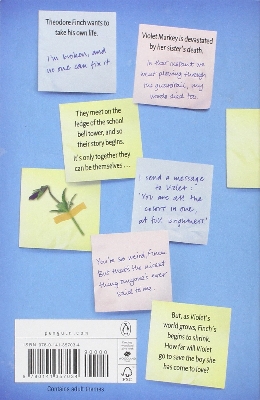 Theodore Finch wants to
take his own life.
I'm broken, and
no one can fix it
Violet Markey is devastated
by her sister's death.
In that instant we
went plowing through
the guardrail, my
words died too.
They meet on the
ledge of the school
bell tower, and so
their story begins.
It's only together they
can be themselves . . .
send a message
to Violet:
'You are all the
colors in one,
at full brightness.'
You're so weird, Finch.
But that's the nicest
thing anyone's ever
said to me.
But, as Violet's
world grows, Finch's
begins to shrink.
How far will Violet
go to save the boy she
has come to love?
penguin.com
ISBN 978-0-141-35703-4
90000
9 780141 357034
FSC
Contains adult themes